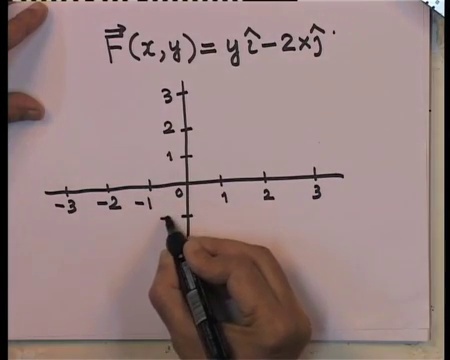 F⃗(x,y) = y î - 2x ĵ
3
2
1
-3 -2 -1 0 1 2 3